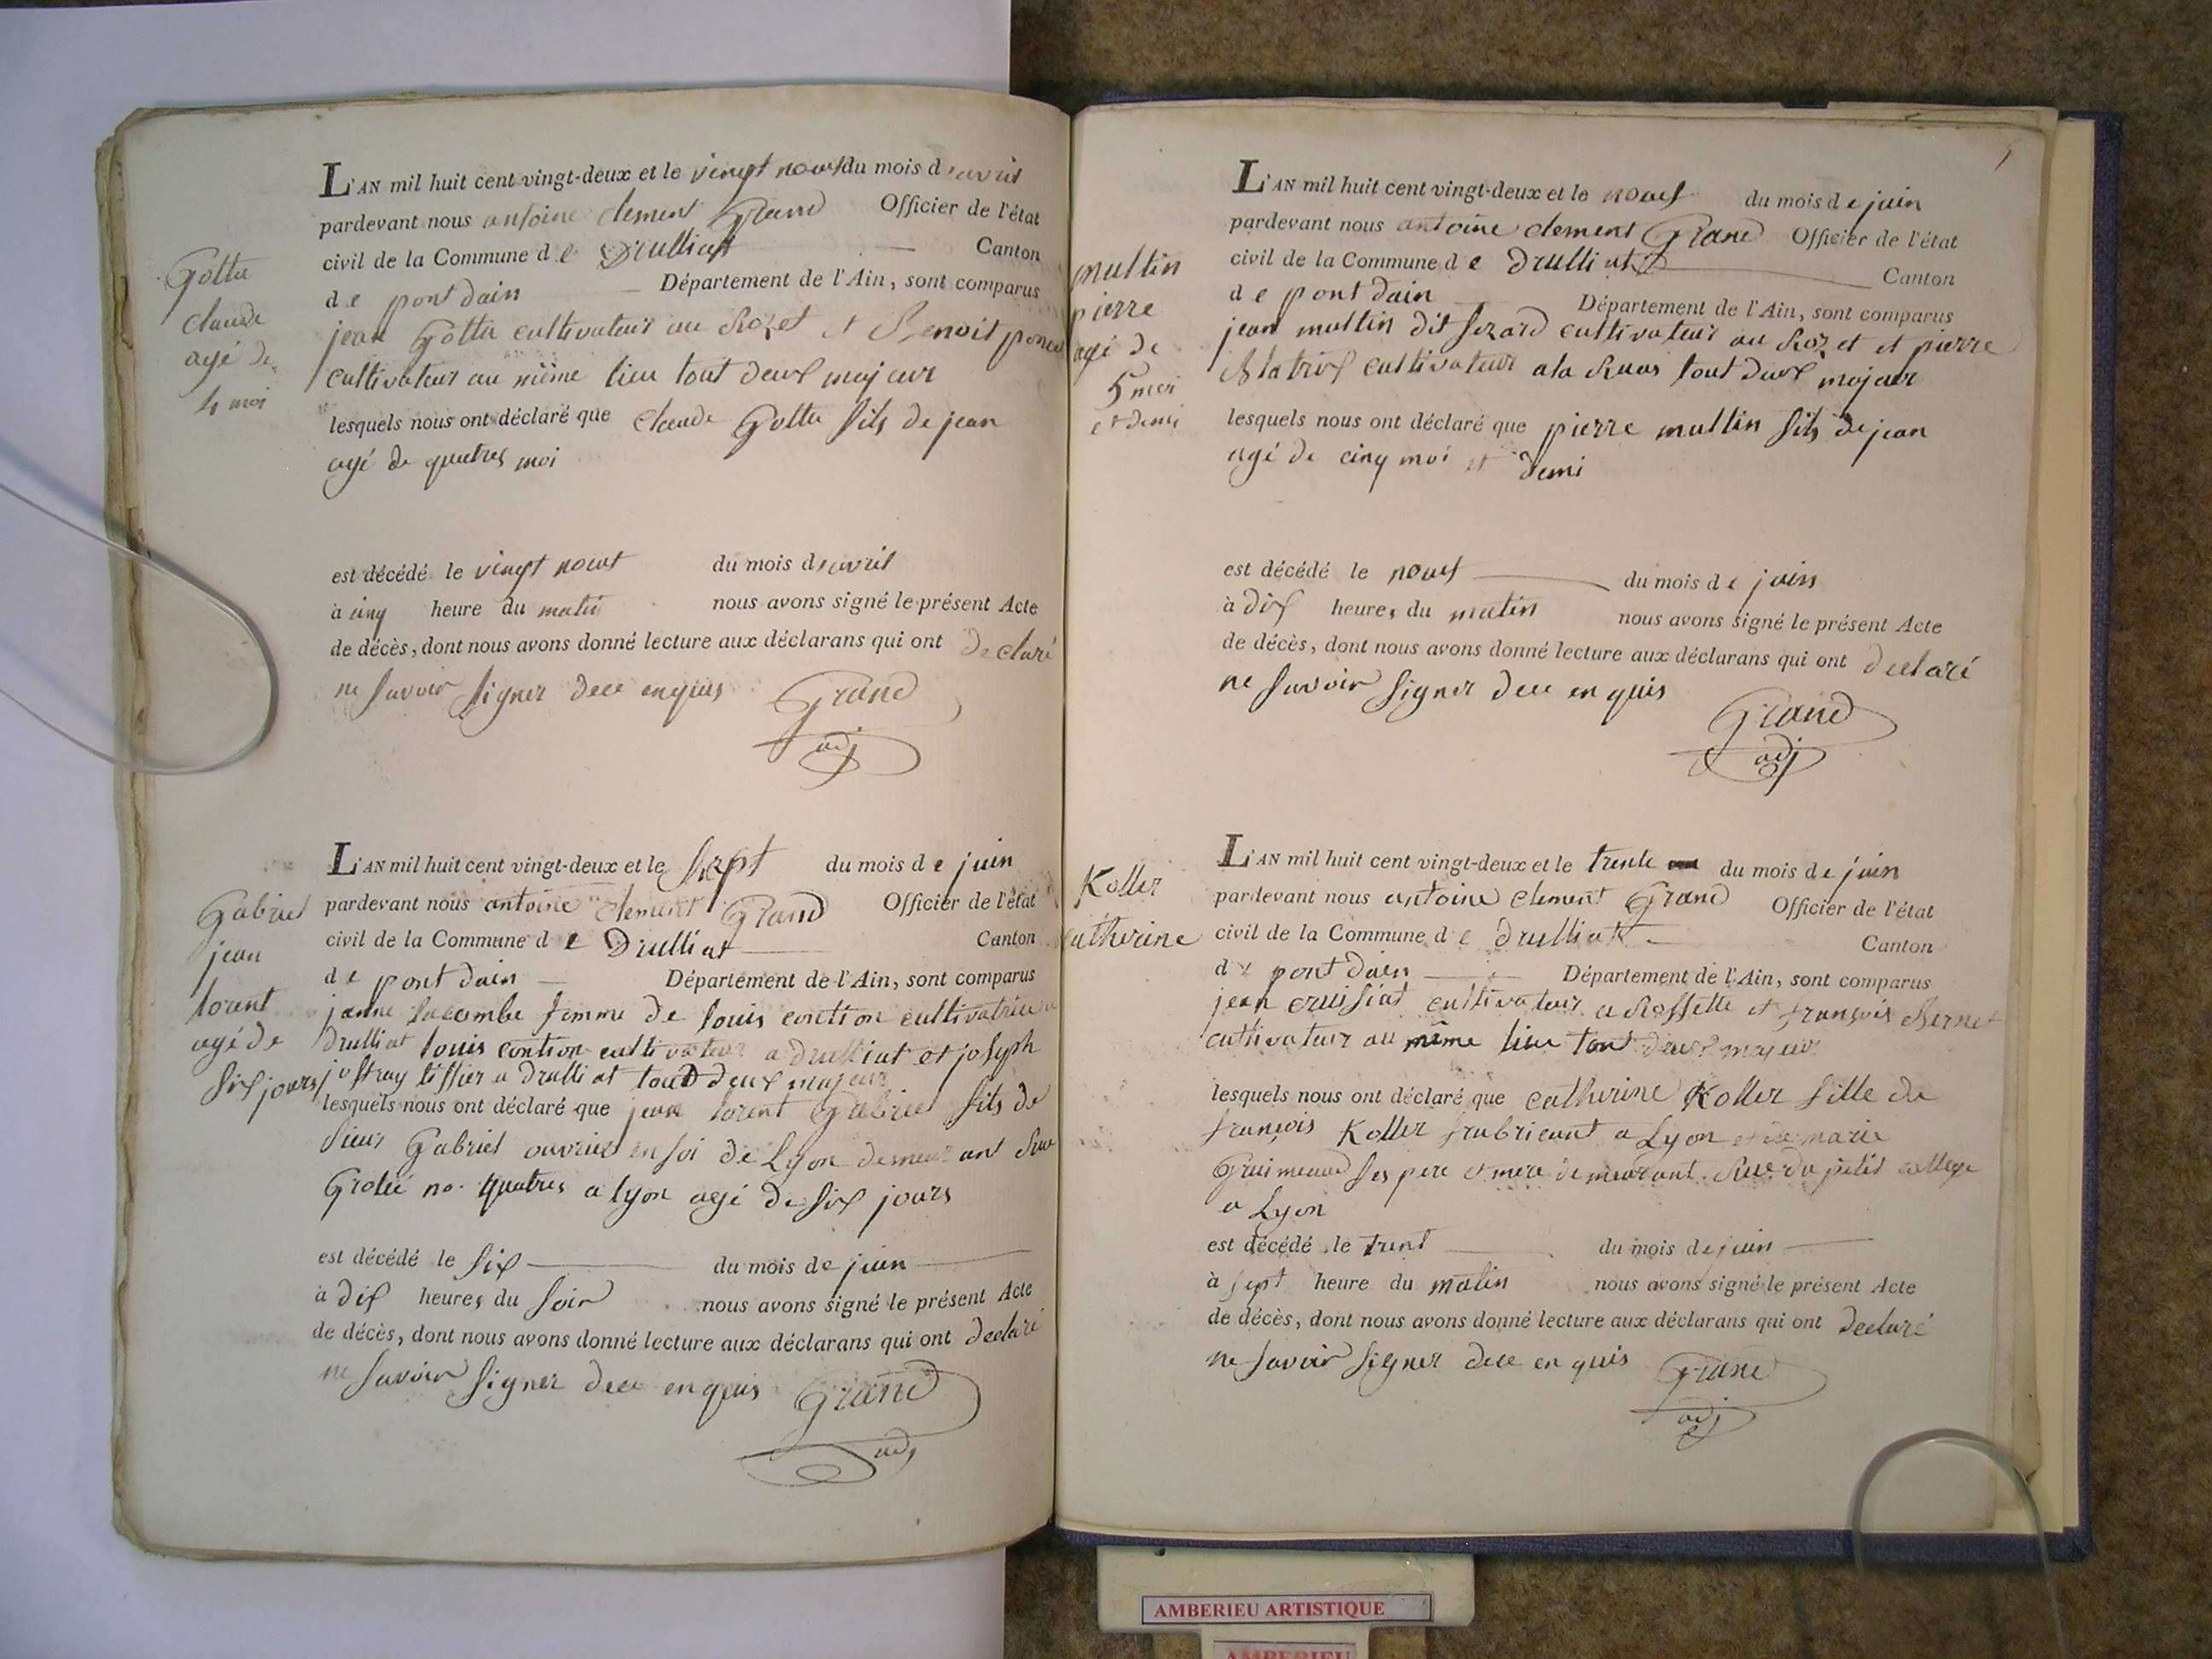 Gottu
claude
agé de
4 moi
L'AN mil huit cent vingt-deux et le vingt nouf du mois d'avril
pardevant nous antoine clement Grand Officier de l'état
civil de la Commune de Drulliat Canton
de pont dain Département de l'Ain, sont comparus
jean Gottu cultivateur au Rozet et Benoit
cultivateur au même lieu tout deux majeur
lesquels nous ont déclaré que Claude Gottu fils de jean
agé de quatres moi
est décédé le vingt nouf du mois d'avril
à cinq heure du matin nous avons signé le présent Acte
de décès, dont nous avons donné lecture aux déclarans qui ont declaré
ne savoir signer dece enquis Grand
adj
Gabriel
jean
lorent
agé de
six jours
L'AN mil huit cent vingt-deux et le sept du mois de juin
pardevant nous antoine clement Grand Officier de l'état
civil de la Commune de Drulliat Canton
de pont dain Département de l'Ain, sont comparus
janne lacombe femme de louis contion cultivatrice a
drulliat louis contion cultivateur a drulliat et joseph
tissier a drulliat tout deux majeur
lesquels nous ont déclaré que jean lorent Gabriel fils de
sieur Gabriel ouvrier en soi de Lyon demeurant Rue
Grolié no. quatres a lyon agé de six jours
est décédé le six du mois de juin
à dix heures du soir nous avons signé le présent Acte
de décès, dont nous avons donné lecture aux déclarans qui ont declaré
ne savoir signer dece enquis Grand
adj
multin
pierre
agé de
5 moi
et demi
L'AN mil huit cent vingt-deux et le nouf du mois de juin
pardevant nous antoine clement Grand Officier de l'état
civil de la Commune de Drulliat Canton
de pont dain Département de l'Ain, sont comparus
jean multin dit cultivateur au Rozet et pierre
cultivateur a la tout deux majeur
lesquels nous ont déclaré que pierre multin fils de jean
agé de cinq moi et demi
est décédé le nouf du mois de juin
à dix heures du matin nous avons signé le présent Acte
de décès, dont nous avons donné lecture aux déclarans qui ont declaré
ne savoir signer dece en quis
Grand
adj
Koller
catherine
L'AN mil huit cent vingt-deux et le trente du mois de juin
pardevant nous antoine clement Grand Officier de l'état
civil de la Commune de drulliat Canton
de pont dain Département de l'Ain, sont comparus
jean cruisiat cultivateur a Rossette et françois Bernet
cultivateur au même lieu tout deux majeur
lesquels nous ont déclaré que catherine Koller fille de
françois Koller frabricant a Lyon et de marie
ses pere et mere demeurant Rue du petit college
a Lyon
est décédé le trent du mois de juin
à sept heure du matin nous avons signé le présent Acte
de décès, dont nous avons donné lecture aux déclarans qui ont declaré
ne savoir signer dece en quis Grand
adj
AMBERIEU ARTISTIQUE
AMBERIEU